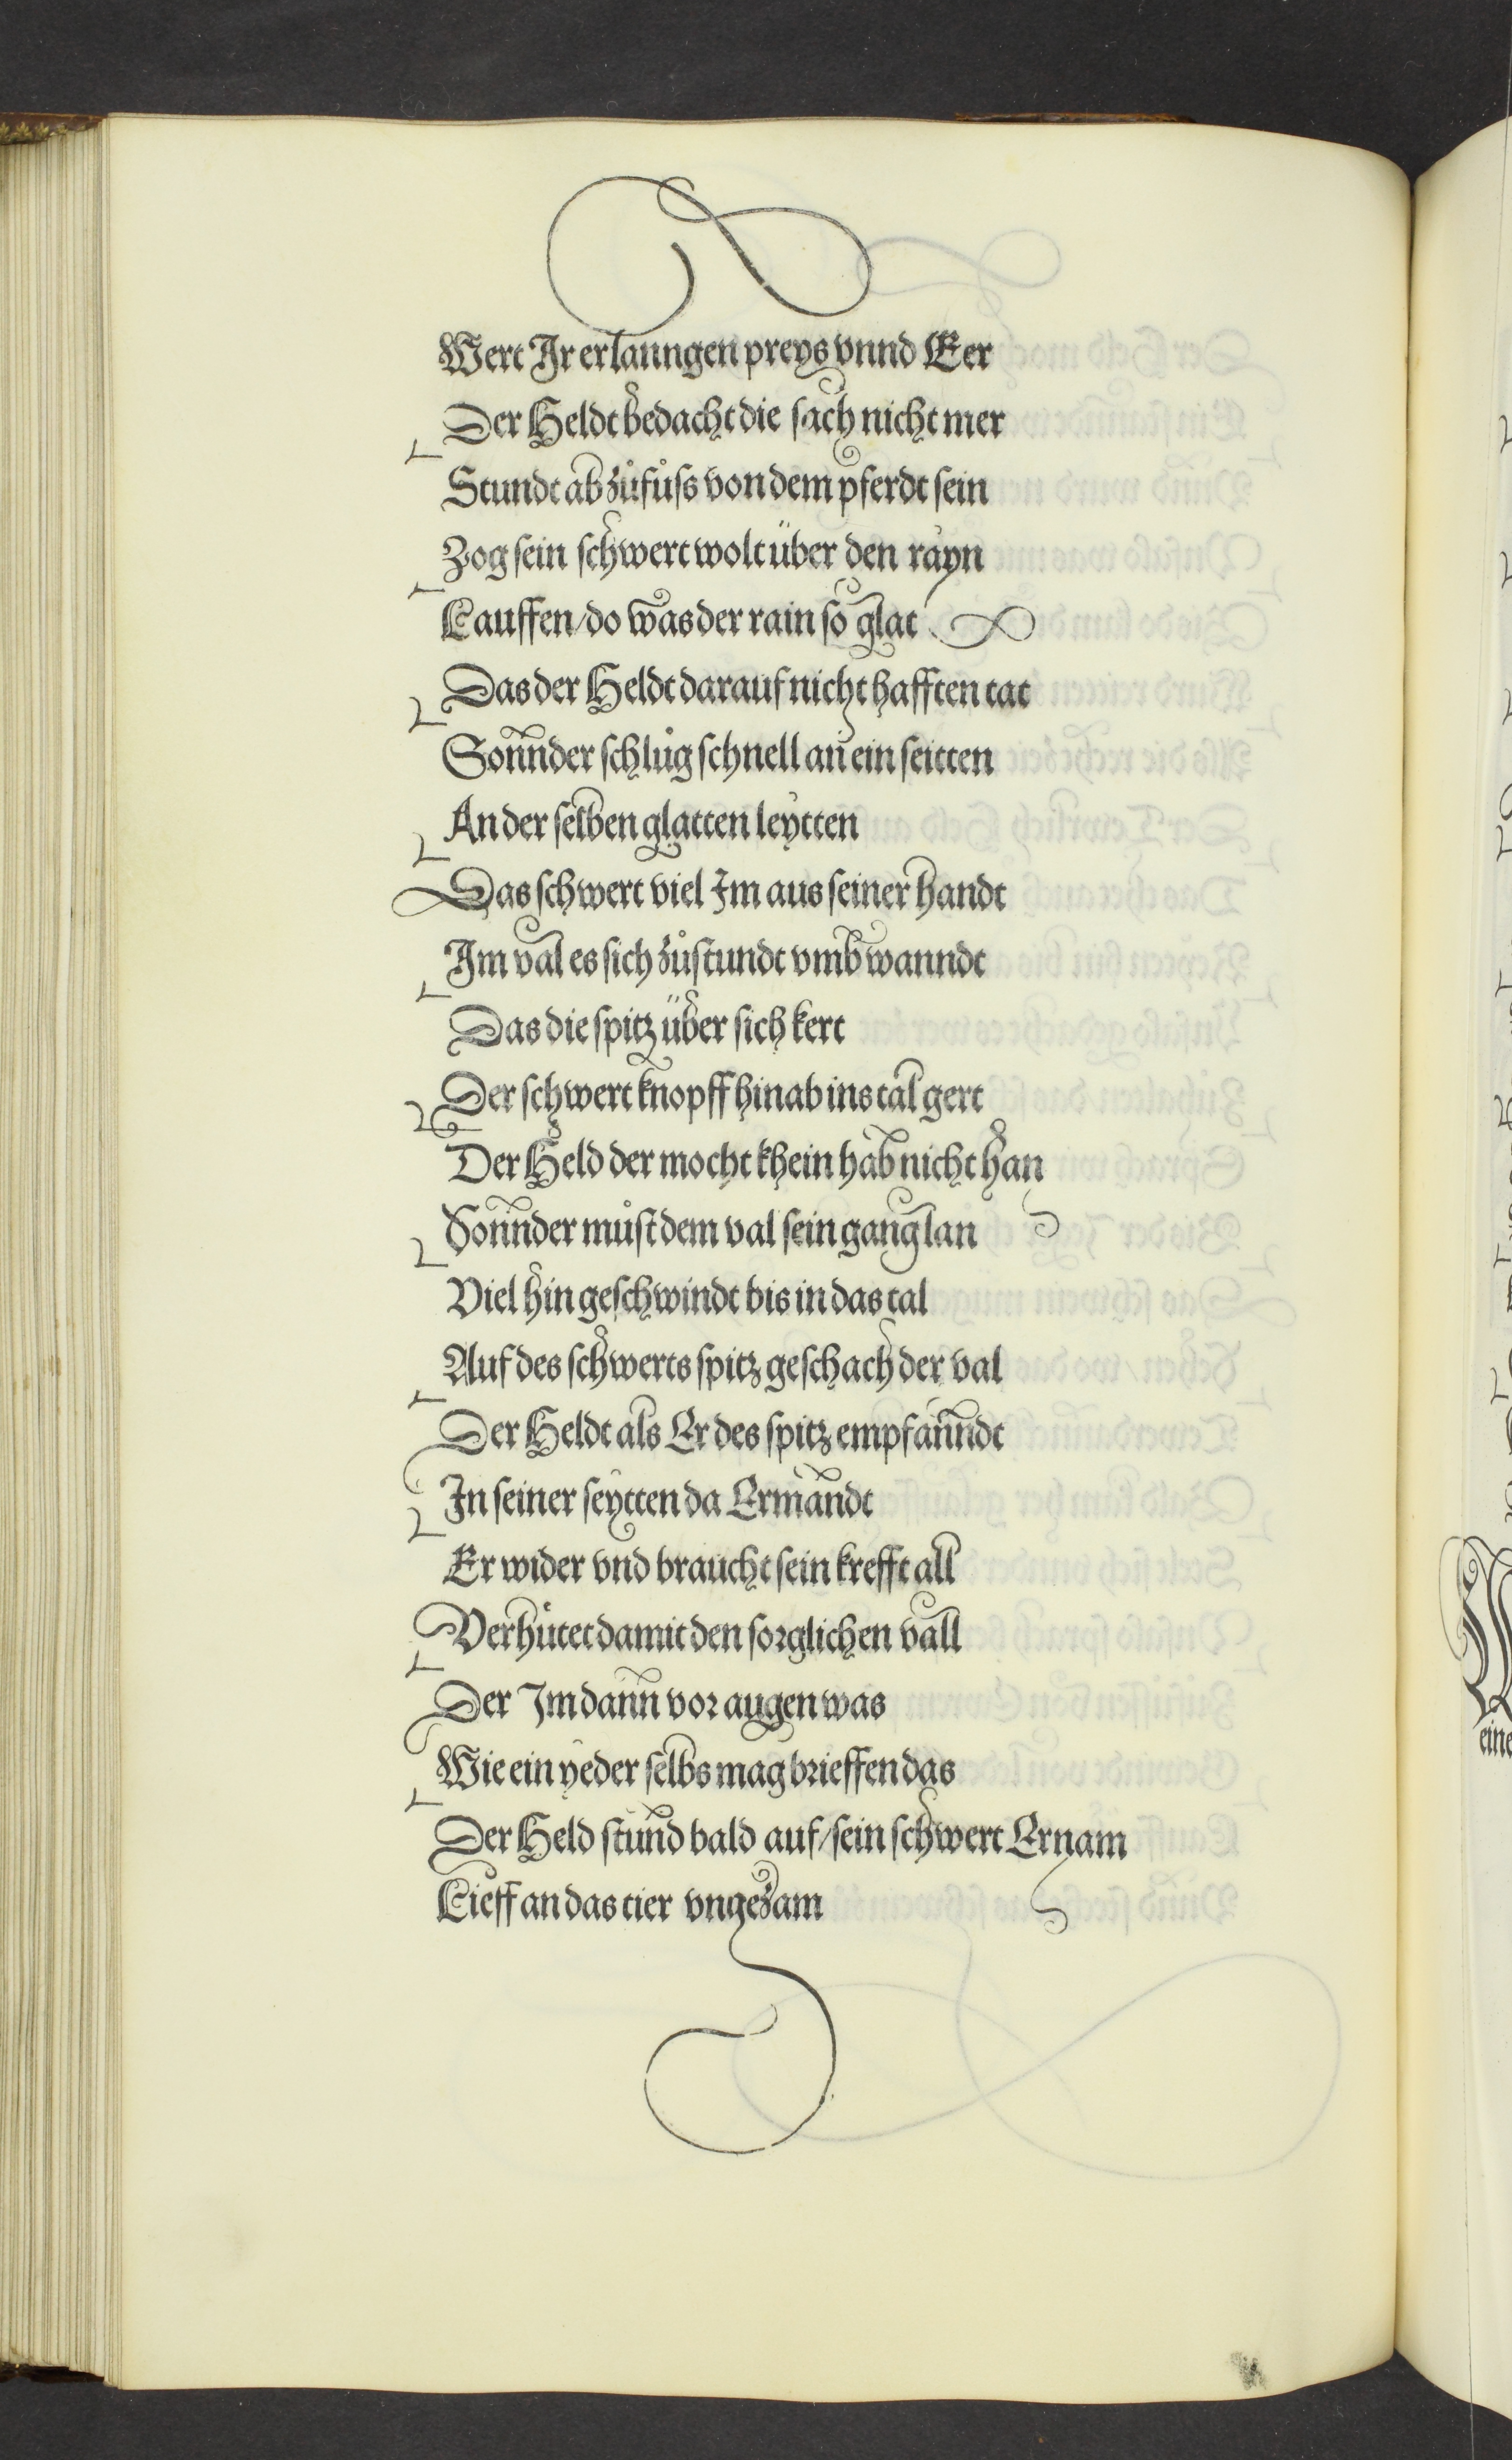 Wert Ir erlanngen preys vnnd Eer
Der Heldt bedacht die sach nicht mer
Stundt ab zůfůss von dem pferdt sein
Zog sein schwert wolt über den rayn
Lauffen/do was der rain so glat
Das der Heldt darauf nicht hafften tat
Sonnder schlůg schnell an ein seitten
An der selben glatten leytten
Das schwert viel Im aus seiner handt
Im val es sich zůstundt vmb wanndt
Das die spitz über sich kert
Der schwert knopff hinab ins tal gert
Der Held der mocht khein hab nicht han
Sonnder můst dem val sein gang lan
Viel hin geschwindt bis in das tal
Auf des schwerts spitz geschach der val
Der Heldt als Er des spitz empfanndt
In seiner seytten da Ermandt
Er wider vnd braucht sein krefft all
Verhůtet damit den sorglichen vall
Der Im dann vor augen was
Wie ein yeder selbs mag brieffen das
Der Held stund bald auf/sein schwert Er nam
Lieff an das tier vngezam
eine